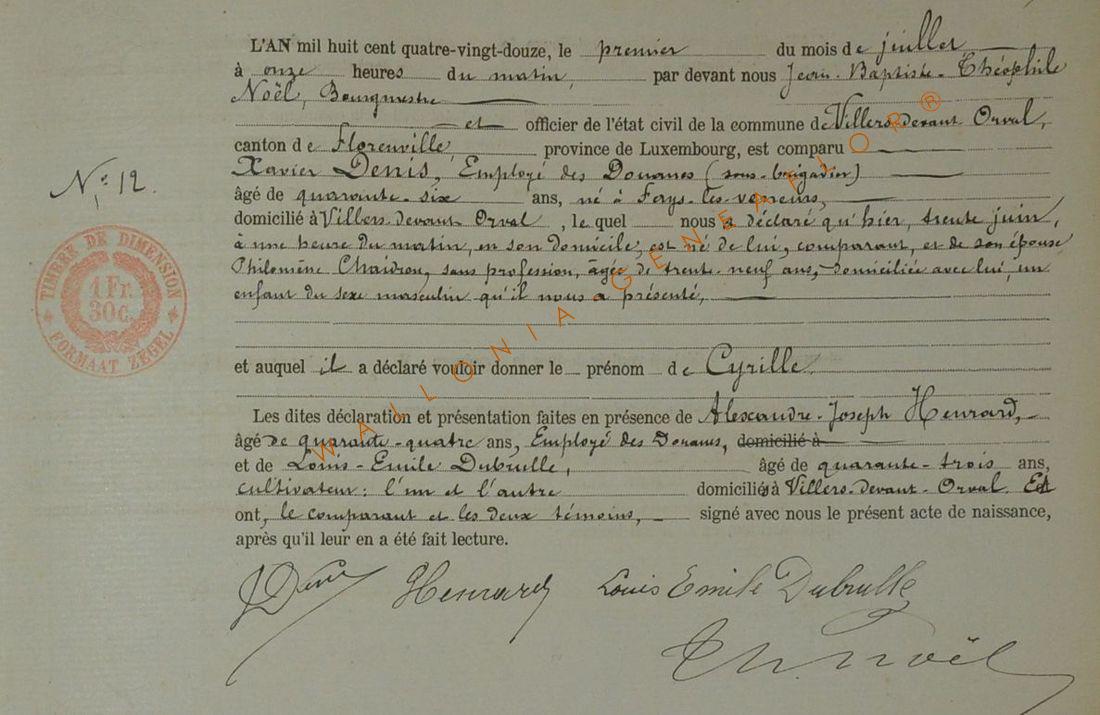 L'AN mil huit cent quatre-vingt-douze, le premier du mois de juillet
à onze heures du matin, par devant nous Jean-Baptiste-Théophile
Noël, Bourgmestre
et officier de l'état civil de la commune de Villers-devant Orval,
canton de Florenville, province de Luxembourg, est comparu
Xavier Denis, Employé des Douanes (sous-brigadier)
N° 12.
âgé de quarante-six ans, né à Fays-les-veneurs,
domicilié à Villers-devant Orval, le quel nous a déclaré qu'hier, trente juin,
à une heure du matin, en son domicile, est né de lui, comparant, et de son épouse
Philomène Chaidron, sans profession, âgée de trente-neuf ans, domiciliée avec lui, un
enfant du sexe masculin qu'il nous a présenté,
TIMBRE DE DIMENSION
1 Fr.
30c.
FORMAAT ZEGEL
et auquel il a déclaré vouloir donner le prénom de Cyrille.
Les dites déclaration et présentation faites en présence de Alexandre-Joseph Henrard,
âgé de quarante-quatre ans, Employé des Douanes, domicilié à
et de Louis-Emile Dubrulle, âgé de quarante-trois ans,
cultivateur: l'un et l'autre domiciliés à Villers-devant-Orval. Et
ont, le comparant et les deux témoins, signé avec nous le présent acte de naissance,
après qu'il leur en a été fait lecture.
Henrard Louis Emile Dubrulle
Th. Noël
WALLONIA GENEAFLOR®